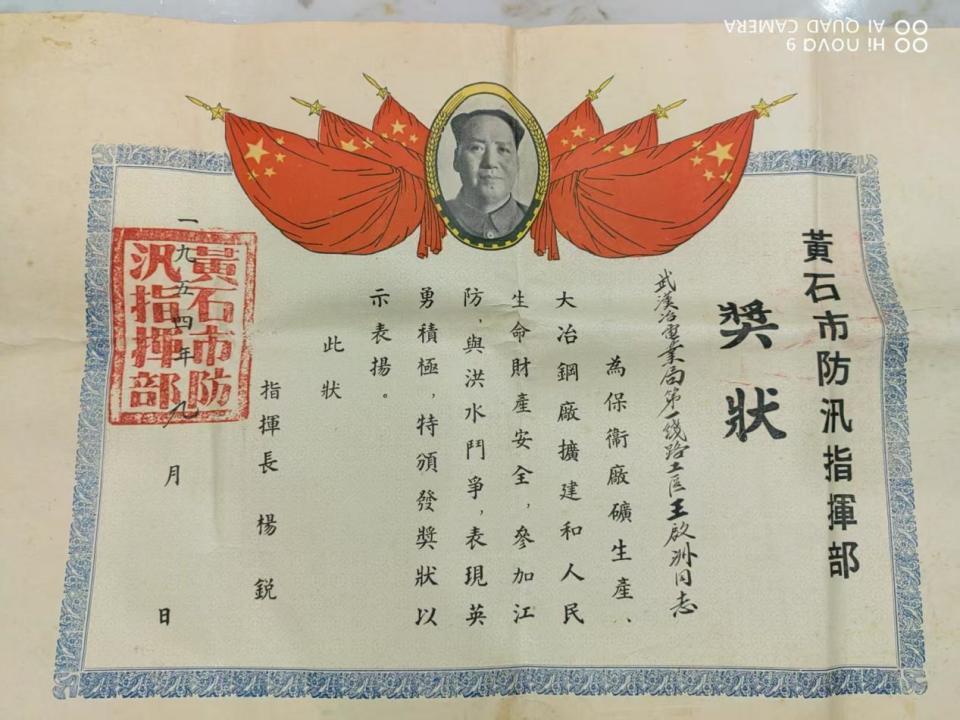 黃石市防汛指揮部
獎狀
武漢冶電業局第一线路工区王啟洲同志
為保衞廠礦生產、
大冶鋼廠擴建和人民
生命財產安全，參加江
防，與洪水鬥爭，表現英
勇積極，特頒發獎狀以
示表揚。
此狀
指揮長 楊銳
一九五四年九月 日
黃石市防
汛指揮部
Hi nova 9
AI QUAD CAMERA